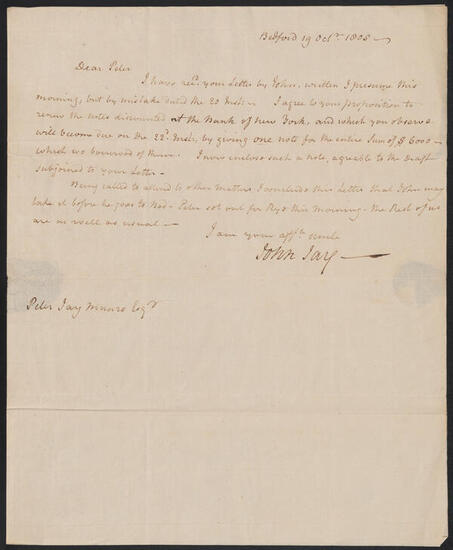 Bedford 19 Octr. 1808 —
Dear Peter
I have recd. your Letter by John, written I presume this
morning, but by mistake dated the 20 Inst. — I agree to your proposition to
renew the notes discounted at the Bank of New York, and which you observe
will become due on the 22d. Inst., by giving one note for the entire Sum of $ 6000 —
which we borrowed of them. I now enclose such a note, agreable to the Draft
subjoined to your Letter —
Being called to attend to other matters I conclude this Letter that John may
take it before he goes to bed — Peter set out for Rye this morning — the Rest of us
are as well as usual —
I am your affte. uncle
John Jay —
Peter Jay Munro Esqr.